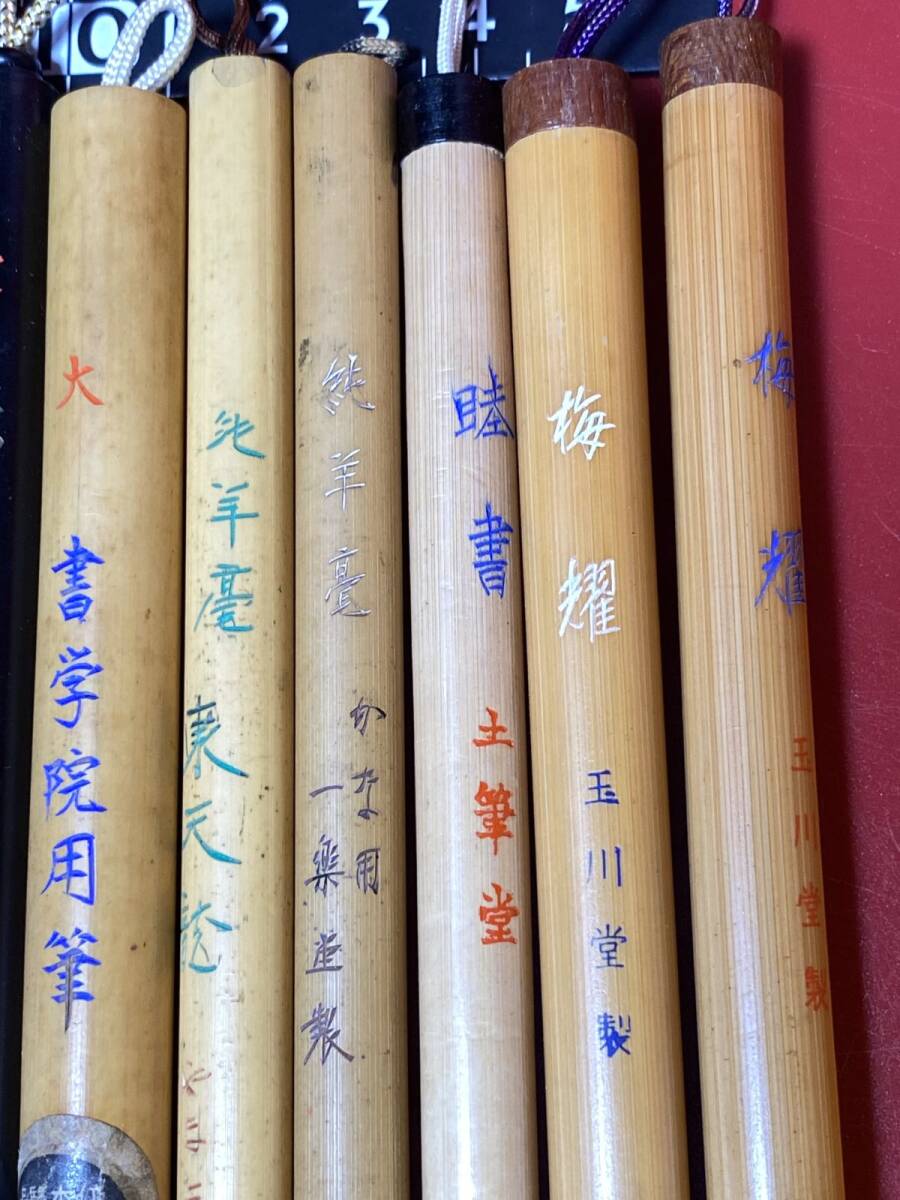 0 2 3 4 5
大 書学院用筆
純羊毫 東天龍
純羊毫
かな用
一楽造製
睦書 土筆堂
梅耀 玉川堂製
梅耀 玉川堂製